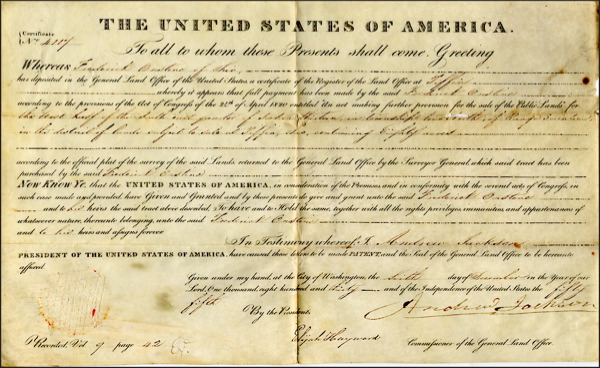 THE UNITED STATES OF AMERICA.
Certificate
No.
To all to whom these Presents shall come, Greeting
Whereas Frederick of Ohio
has deposited in the General Land Office of the United States, a certificate of the Register of the Land Office at Tiffin
whereby it appears that full payment has been made by the said Frederick
according to the provisions of the Act of Congress of the 24th of April 1820 entitled An act making further provision for the sale of the Public Lands, for
the West half of the South west quarter of Section in township of Range
in the district of Lands subject to sale at Tiffin, Ohio, containing Eighty acres
according to the official plat of the survey of the said Lands returned to the General Land Office by the Surveyor General, which said tract has been
purchased by the said Frederick
Now Know Ye, that the UNITED STATES OF AMERICA, in consideration of the Premises and in conformity with the several acts of Congress, in
such case made and provided have Given and Granted and by these presents do give and grant unto the said Frederick
and to his heirs the said tract above described. To have and to Hold the same, together with all the rights privileges, immunities, and appurtenances of
whatsoever nature, thereunto belonging, unto the said Frederick
and to his heirs and assigns forever
In Testimony whereof I, Andrew Jackson
PRESIDENT OF THE UNITED STATES OF AMERICA, have caused these letters to be made PATENT and the Seal of the General Land Office to be hereunto
affixed.
Given under my hand, at the City of Washington, the day of in the Year of our
Lord, One thousand, eight hundred and thirty and of the Independence of the United States the fifty
fifth
By the President: Andrew Jackson
Elijah Hayward
Commissioner of the General Land Office
Recorded, Vol 9 page 42